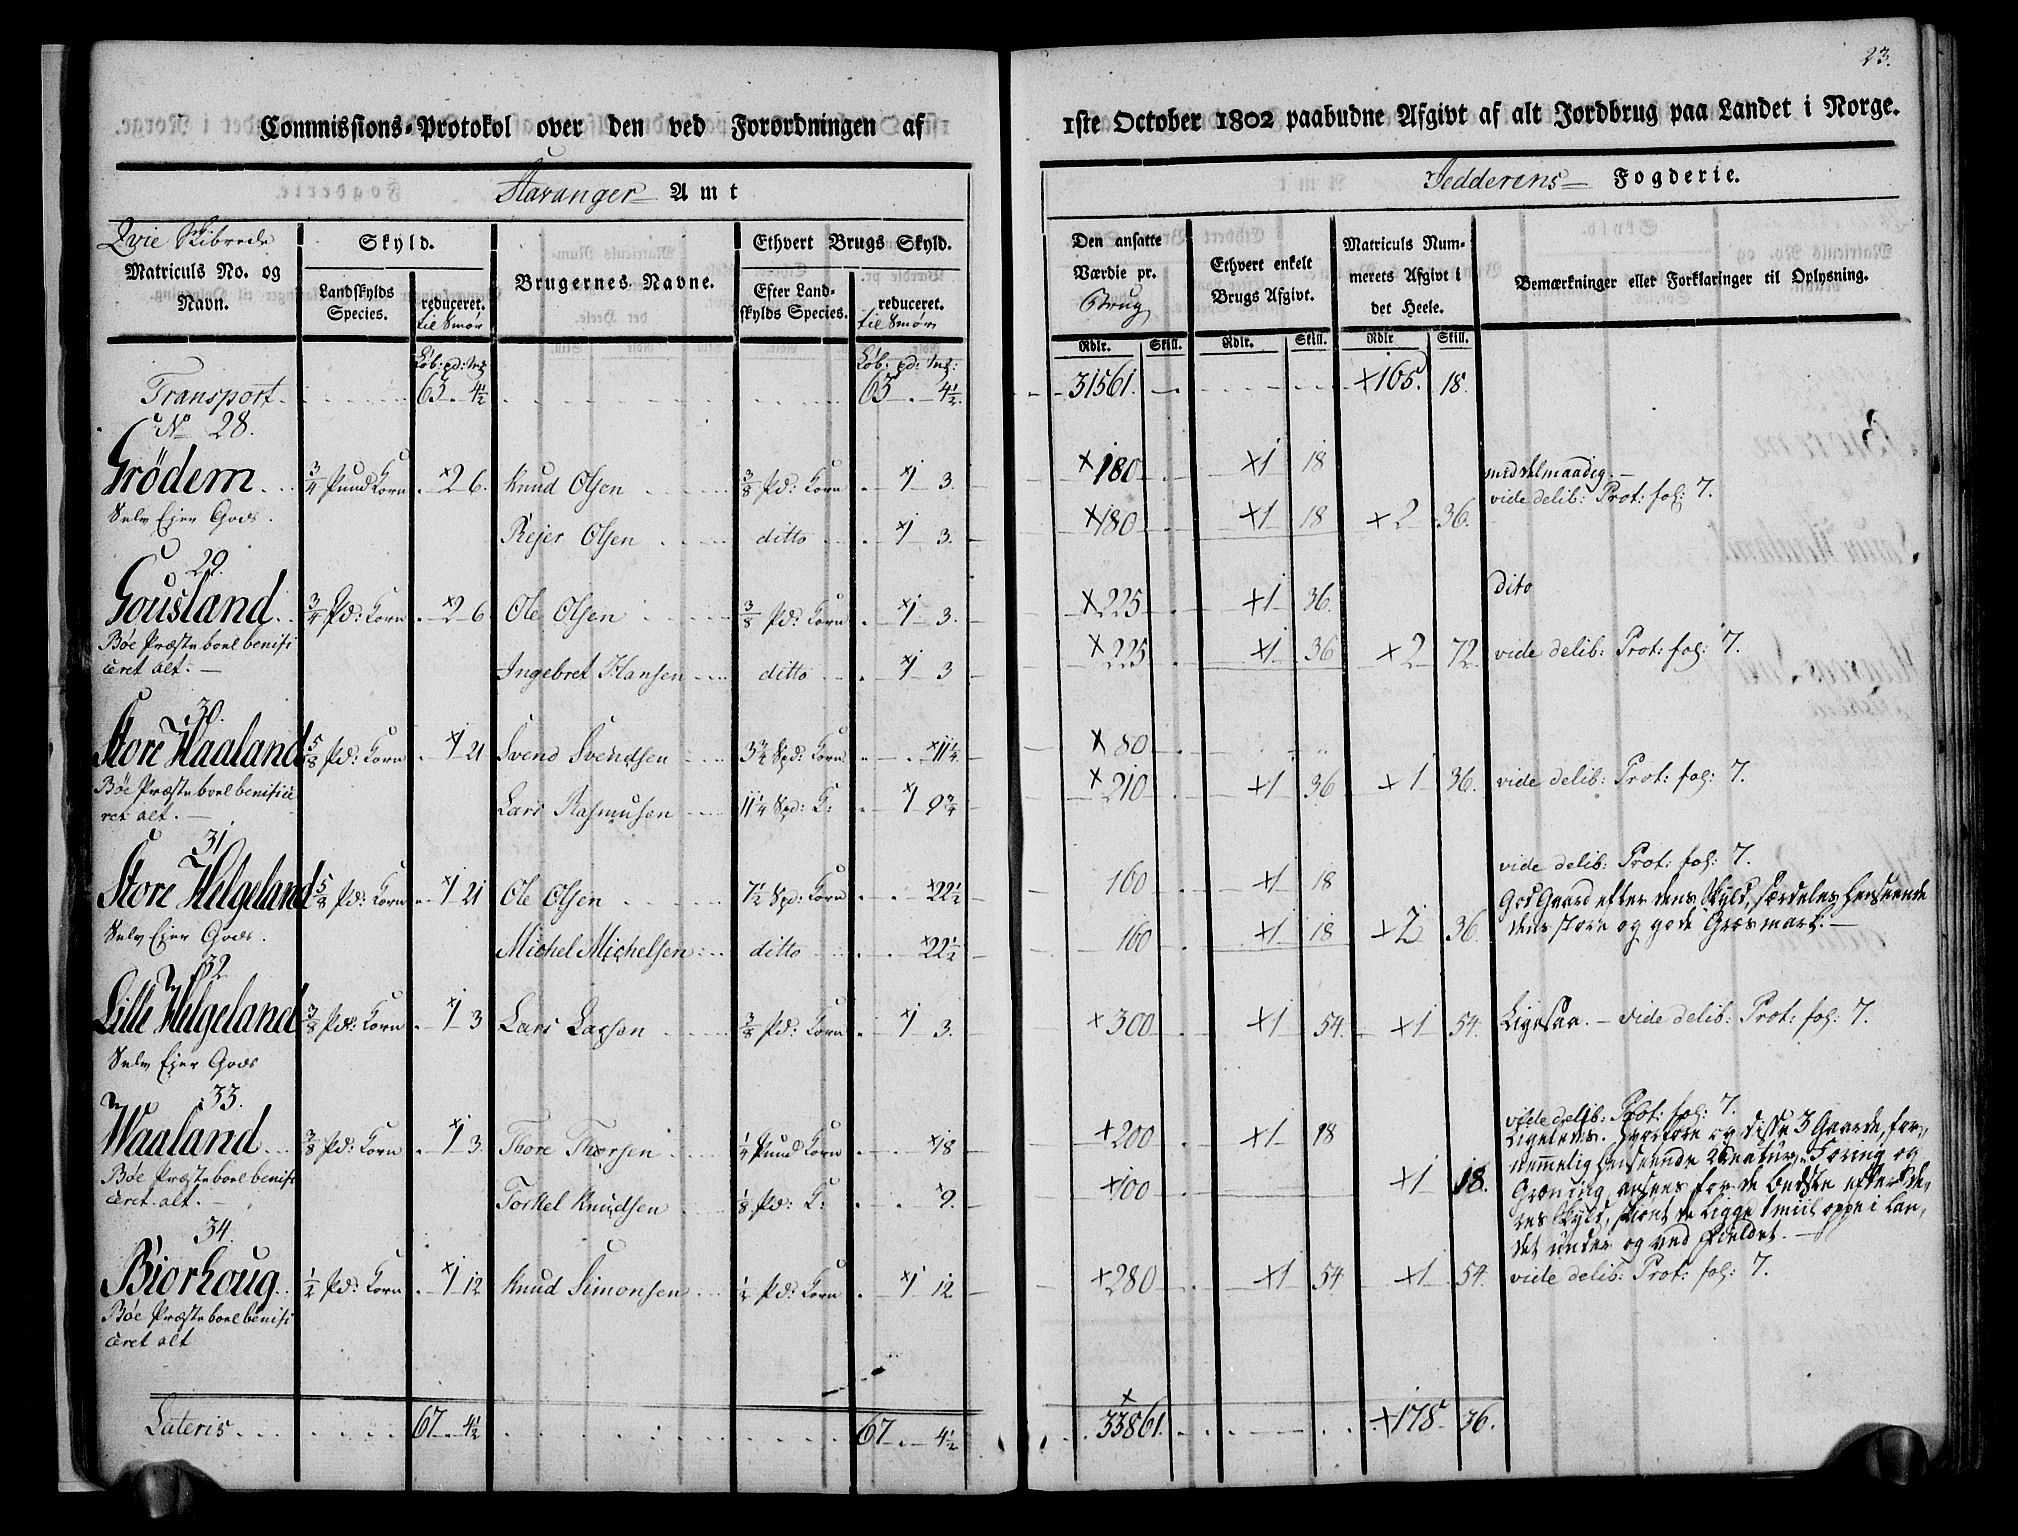 23.
Commissions-Protokol over den ved Forordningen af 1ste October 1802 paabudne Afgivt af alt Jordbrug paa Landet i Norge.
Stavanger Amt
Jedderens Fogderie.
Qvie Skibrede
Matriculs No. og Navn.
Skyld.
Landskylds Species.
reduceret. til Smør
Brugernes Navne.
Ethvert Brugs Skyld.
Efter Landskylds Species.
reduceret. til Smør
Den ansatte Værdie pr. Brug
Ethvert enkelt Brugs Afgivt.
Matriculs Nummerets Afgivt i det Heele.
Bemærkninger eller Forklaringer til Oplysning.
Rdlr. Skill. Rdlr. Skill. Rdlr Skill.
Transport 63 . 4½ 63 . 4½ 31561. ×165. 18.
No 28.
Grödem ¾ Pund Korn ×2 6. Knud Olsen ⅜ Pd: Korn ×1 3. ×180 ×1 18 middelmaadig.
Selv Ejer Gods. vide delib: Prot: fol: 7.
Rejer Olsen ditto ×1 3. ×180 ×1 18 ×2 36.
29.
Gousland ¾ Pd: Korn ×2 6 Ole Olsen ⅜ Pd: Korn ×1 3. ×225 ×1 36. dito
Bøe Præsteboel benifi
ceret alt. Ingebret Hansen ditto ×1 3 ×225 ×1 36 ×2 72 vide delib: Prot: fol: 7.
30.
Store Haaland ⅝ Pd: Korn ×1 21 Svend Svendsen 3¾ Spd: Korn ×11¼ ×80
Bøe Præsteboel benifice
ret alt. Lars Rasmusen 11¼ Spd: K: ×1 9¾ ×210 ×1 36 ×1 36. vide delib: Prot: fol: 7.
31
Store Helgeland ⅝ Pd: Korn ×1 21 Ole Olsen 7½ Spd: Korn ×22½ 160 ×1 18 vide delib: Prot: fol: 7.
God Gaard efter dens Skyld, særdeles henseende
Selv Ejer Gods. Michel Michelsen ditto ×22½ 160 ×1 18 ×2 36. dens store og gode Græsmark.
32
Lille Helgeland ⅜ Pd: Korn ×1 3 Lars Larsen ⅜ Pd: Korn ×1 3. ×300 ×1 54. ×1 54. Ligesaa. vide delib: Prot: fol: 7.
Selv Ejer Gods
33.
Waaland ⅜ Pd: Korn ×1 3. Thore Thorsen ¼ Pund Korn ×18 ×200 ×1 18 vide delib: Prot: fol: 7.
Bøe Præsteboel benifi
ceret alt. Torkel Knudsen ⅛ Pd: K: ×9. ×100 ×1 18.
Ligeledes. og disse 3 Gaarde, for-
nemmelig henseende og
Græning, ansees for de bedste efter de-
res Skyld, skiønt de ligge 1 miil oppe i Lan-
det under og ved Fieldet.
34.
Biorhoug ½ Pd: Korn ×1 12 Knud Simonsen ½ Pd: Korn ×1 12 ×280 ×1 54 ×1 54. vide delib: Prot: fol: 7.
Bøe Præsteboel benifi
ceret alt
Lateris 67 . 4½ 67 . 4½ ×33861. ×178. 36.